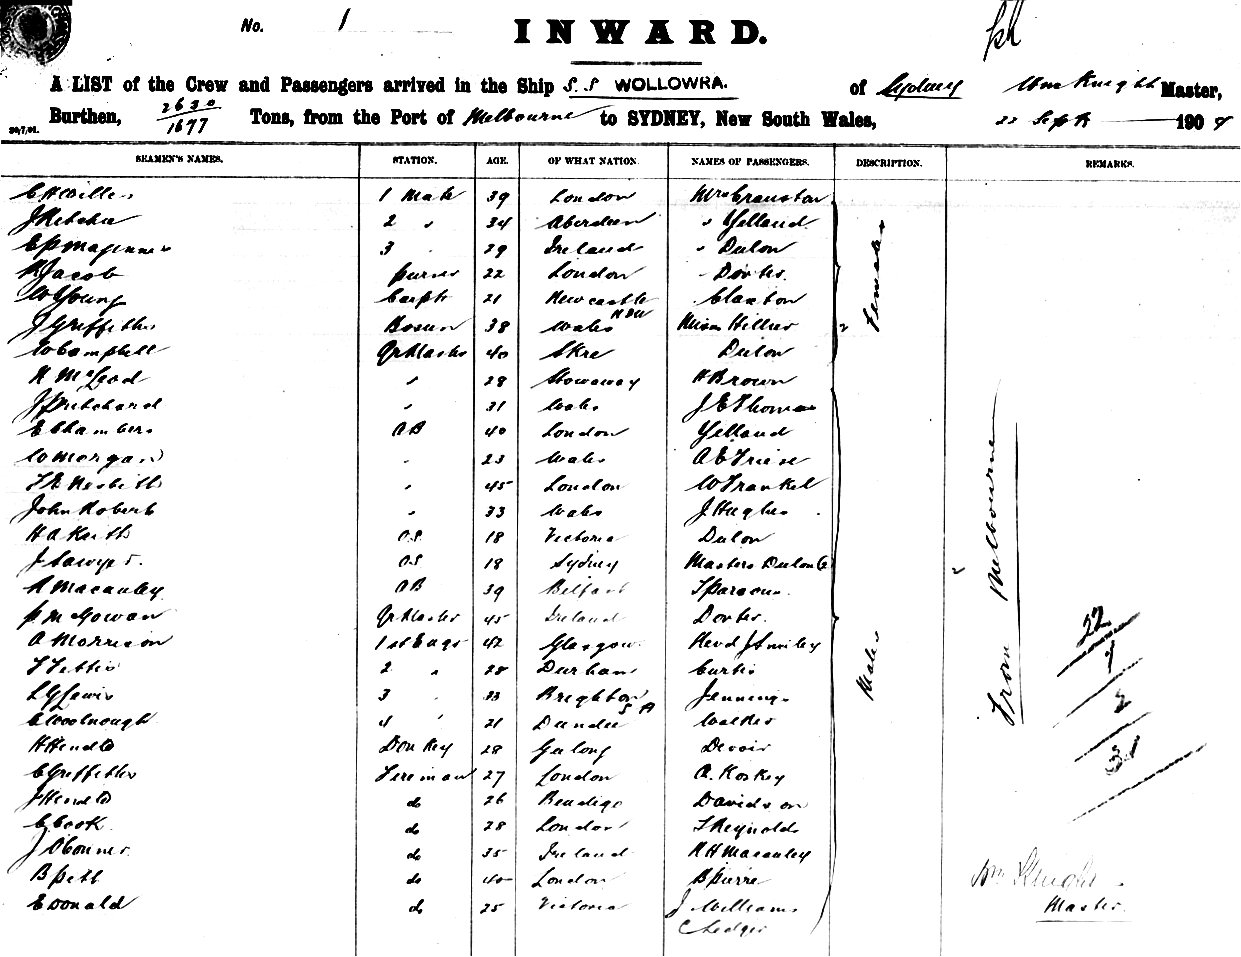 No. 1
INWARD.
A LIST of the Crew and Passengers arrived in the Ship S.S WOLLOWRA. of Sydney Wm Knight Master,
Burthen, 2630/1677 Tons, from the Port of Melbourne to SYDNEY, New South Wales, 22 Sept 1904
SEAMEN'S NAMES. STATION. AGE. OF WHAT NATION. NAMES OF PASSENGERS. DESCRIPTION. REMARKS.
C H Willes 1 Mate 39 London Mrs Cranston
J Ritchie 2 " 34 Aberdeen " Yelland
3 " 29 Ireland " Dulon
Jacob purser 22 London
W Young Carptr 21 Newcastle NSW Claxton
J Griffiths Bosun 38 Wales Hillier
W Campbell Qr Master 40 Skye Dulon
N McLeod " 28 Stornoway H Brown
J Pritchard " 31 Wales J E Thomas
E Chambers AB 40 London Yelland
W Morgan " 23 Wales A E Friese
Nesbitt " 45 London W Frankel
John Roberts " 33 Wales J Hughes
H A Keith OS 18 Victoria Dulon
J Sawyer OS 18 Sydney Masters Dulon 2
R Macauley AB 39 Belfast
P McGowan Qr Master 45 Ireland
A Morrison 1st Engr 42 Glasgow Revd J Smiley
2 " 28 Durham Curtis
L G Lewis 3 " 23 Brighton S A Jennings
C Woolnough 4 " 21 Dundee Walker
H Hendle Donkey 28 Geelong
C Griffiths Fireman 27 London A. Koskey
J Hendle do 26 Bendigo Davidson
C Cook do 28 London T Reynolds
J OConnor do 35 Ireland R H Macauley
B Pett do 40 London B Pierre
E Donald do 25 Victoria J Williams
C Ledger
Females
Males
From Melbourne
22
7
2
31
Wm Knight
Master